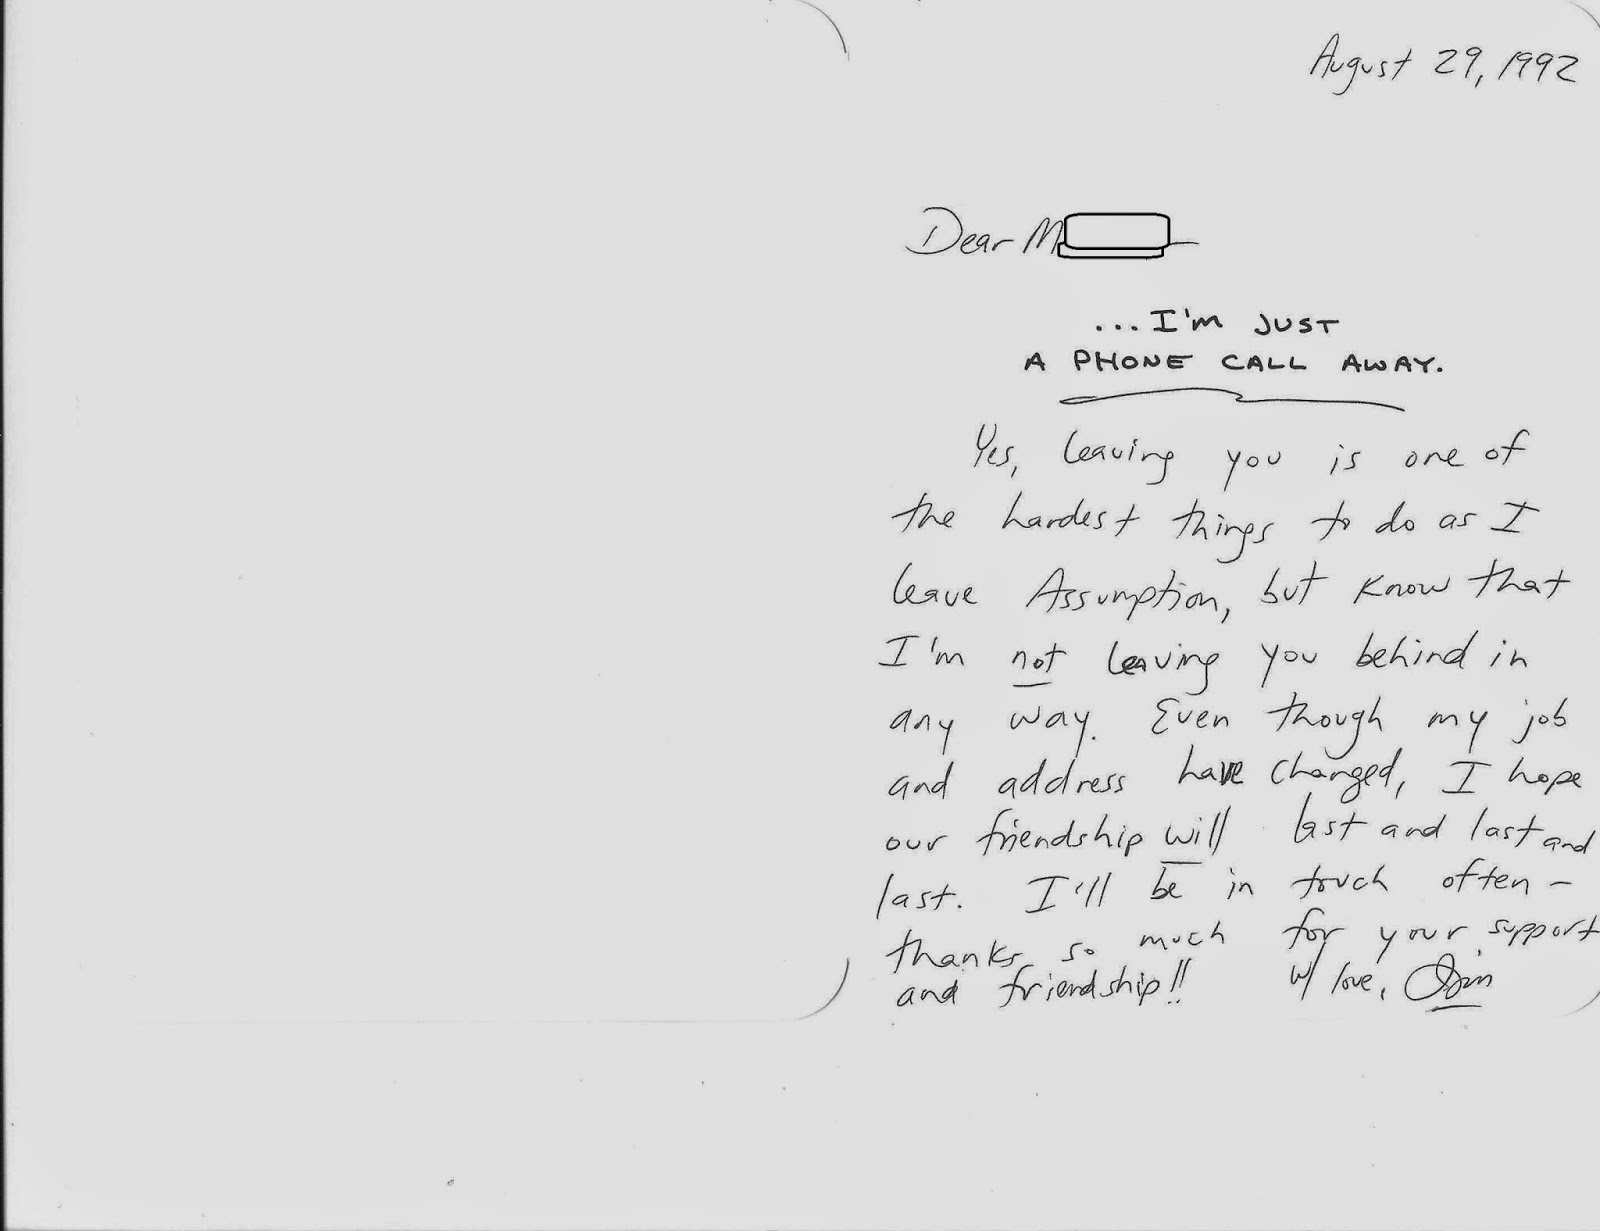 August 29, 1992
Dear M
...I'm JUST
A PHONE CALL AWAY.
Yes, leaving you is one of
the hardest things to do as I
leave Assumption, but know that
I'm not leaving you behind in
any way. Even though my job
and address have changed, I hope
our friendship will last and last and
last. I'll be in touch often -
thanks so much for your support
and friendship!! w/ love, Jim